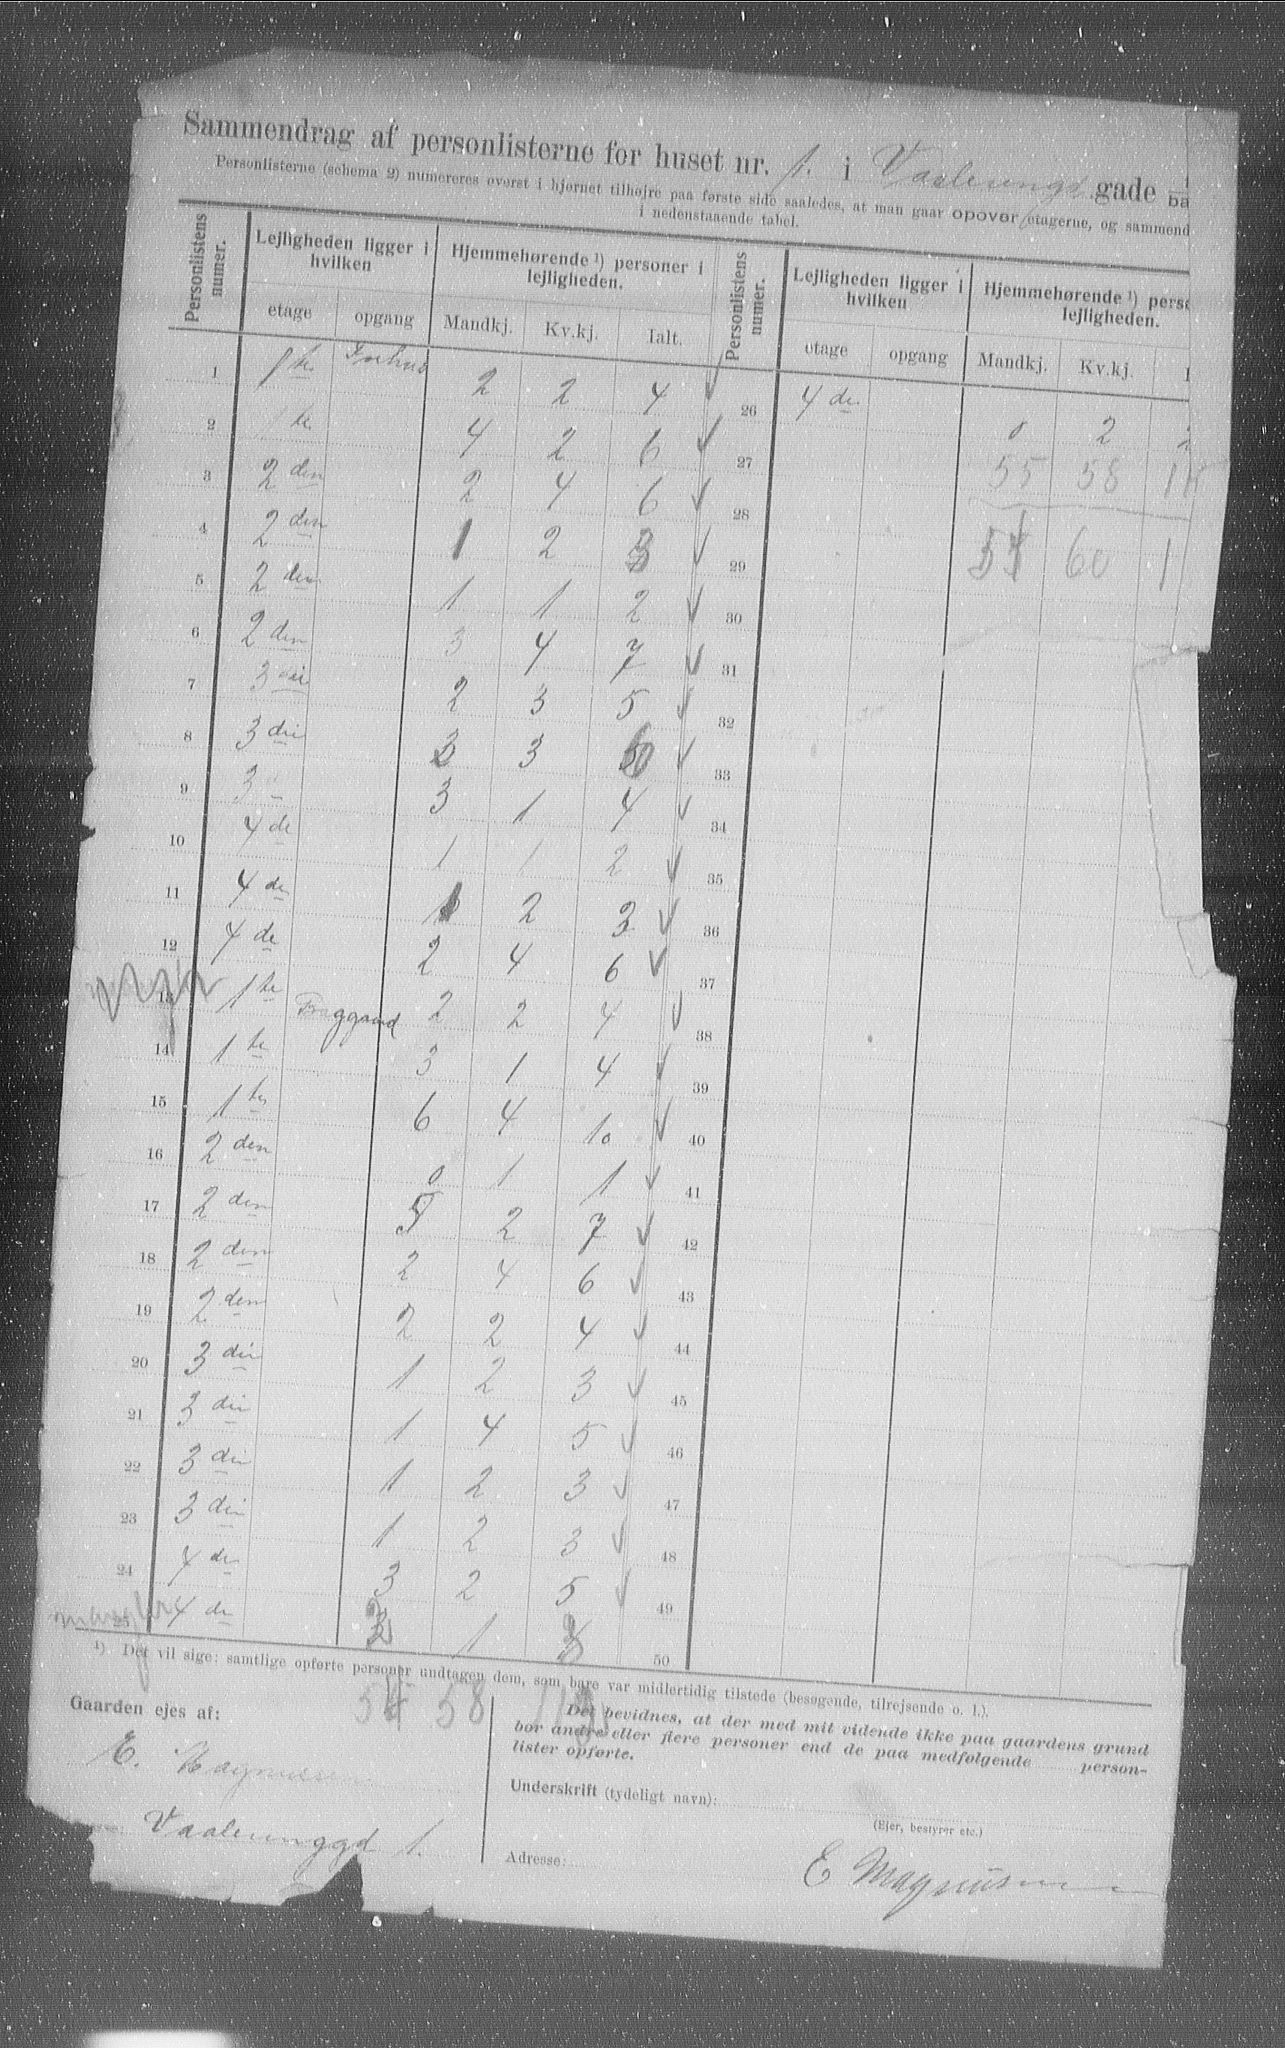 Sammendrag af personlisterne for huset nr. 1. i Vaalerengd. gade
Personlisterne (schema 2) numereres øverst i hjørnet tilhøjre paa første side saaledes, at man gaar opover etagerne, og sammend
i nedenstaaende tabel.
Personlistens numer. Lejligheden ligger i hvilken Hjemmehørende ¹) personer i lejligheden. Personlistens numer. Lejligheden ligger i hvilken Hjemmehørende ¹) perso lejligheden.
etage opgang Mandkj. Kv.kj. Ialt. etage opgang Mandkj. Kv.kj. I
1 1te Forhus 2 2 4 ✓ 26 4de 0 2 2
2 1te 4 2 6 ✓ 27 55 58 11
3 2den 2 4 6 ✓ 28
4 2den 1 2 3 ✓ 29 60 1
5 2den 1 1 2 ✓ 30
6 2den 3 4 7 ✓ 31
7 3die 2 3 5 ✓ 32
8 3die 3 3 6 ✓ 33
9 3 3 1 4 ✓ 34
10 4de 1 1 2 ✓ 35
11 4de 1 2 3 ✓ 36
12 4de 2 4 6 ✓ 37
13 1te Forggaard 2 2 4 ✓ 38
14 1te 3 1 4 ✓ 39
15 1te 6 4 10 ✓ 40
16 2den 0 1 1 ✓ 41
17 2den 5 2 7 ✓ 42
18 2den 2 4 6 ✓ 43
19 2den 2 2 4 ✓ 44
20 3die 1 2 3 ✓ 45
21 3die 1 4 5 ✓ 46
22 3die 1 2 3 ✓ 47
23 3die 1 2 3 ✓ 48
24 4de 3 2 5 ✓ 49
25 4de 2 1 3 50
¹) Det vil sige: samtlige opførte personer undtagen dem, som bare var midlertidig tilstede (besøgende, tilrejsende o. l.).
58
Gaarden ejes af:
E. Magnussen
Vaalerenggd 1.
Det bevidnes, at der med mit vidende ikke paa gaardens grund
bor andre eller flere personer end de paa medfølgende person-
lister opførte.
Underskrift (tydeligt navn):
(Ejer, bestyrer etc.)
E Magnussen
Adresse: